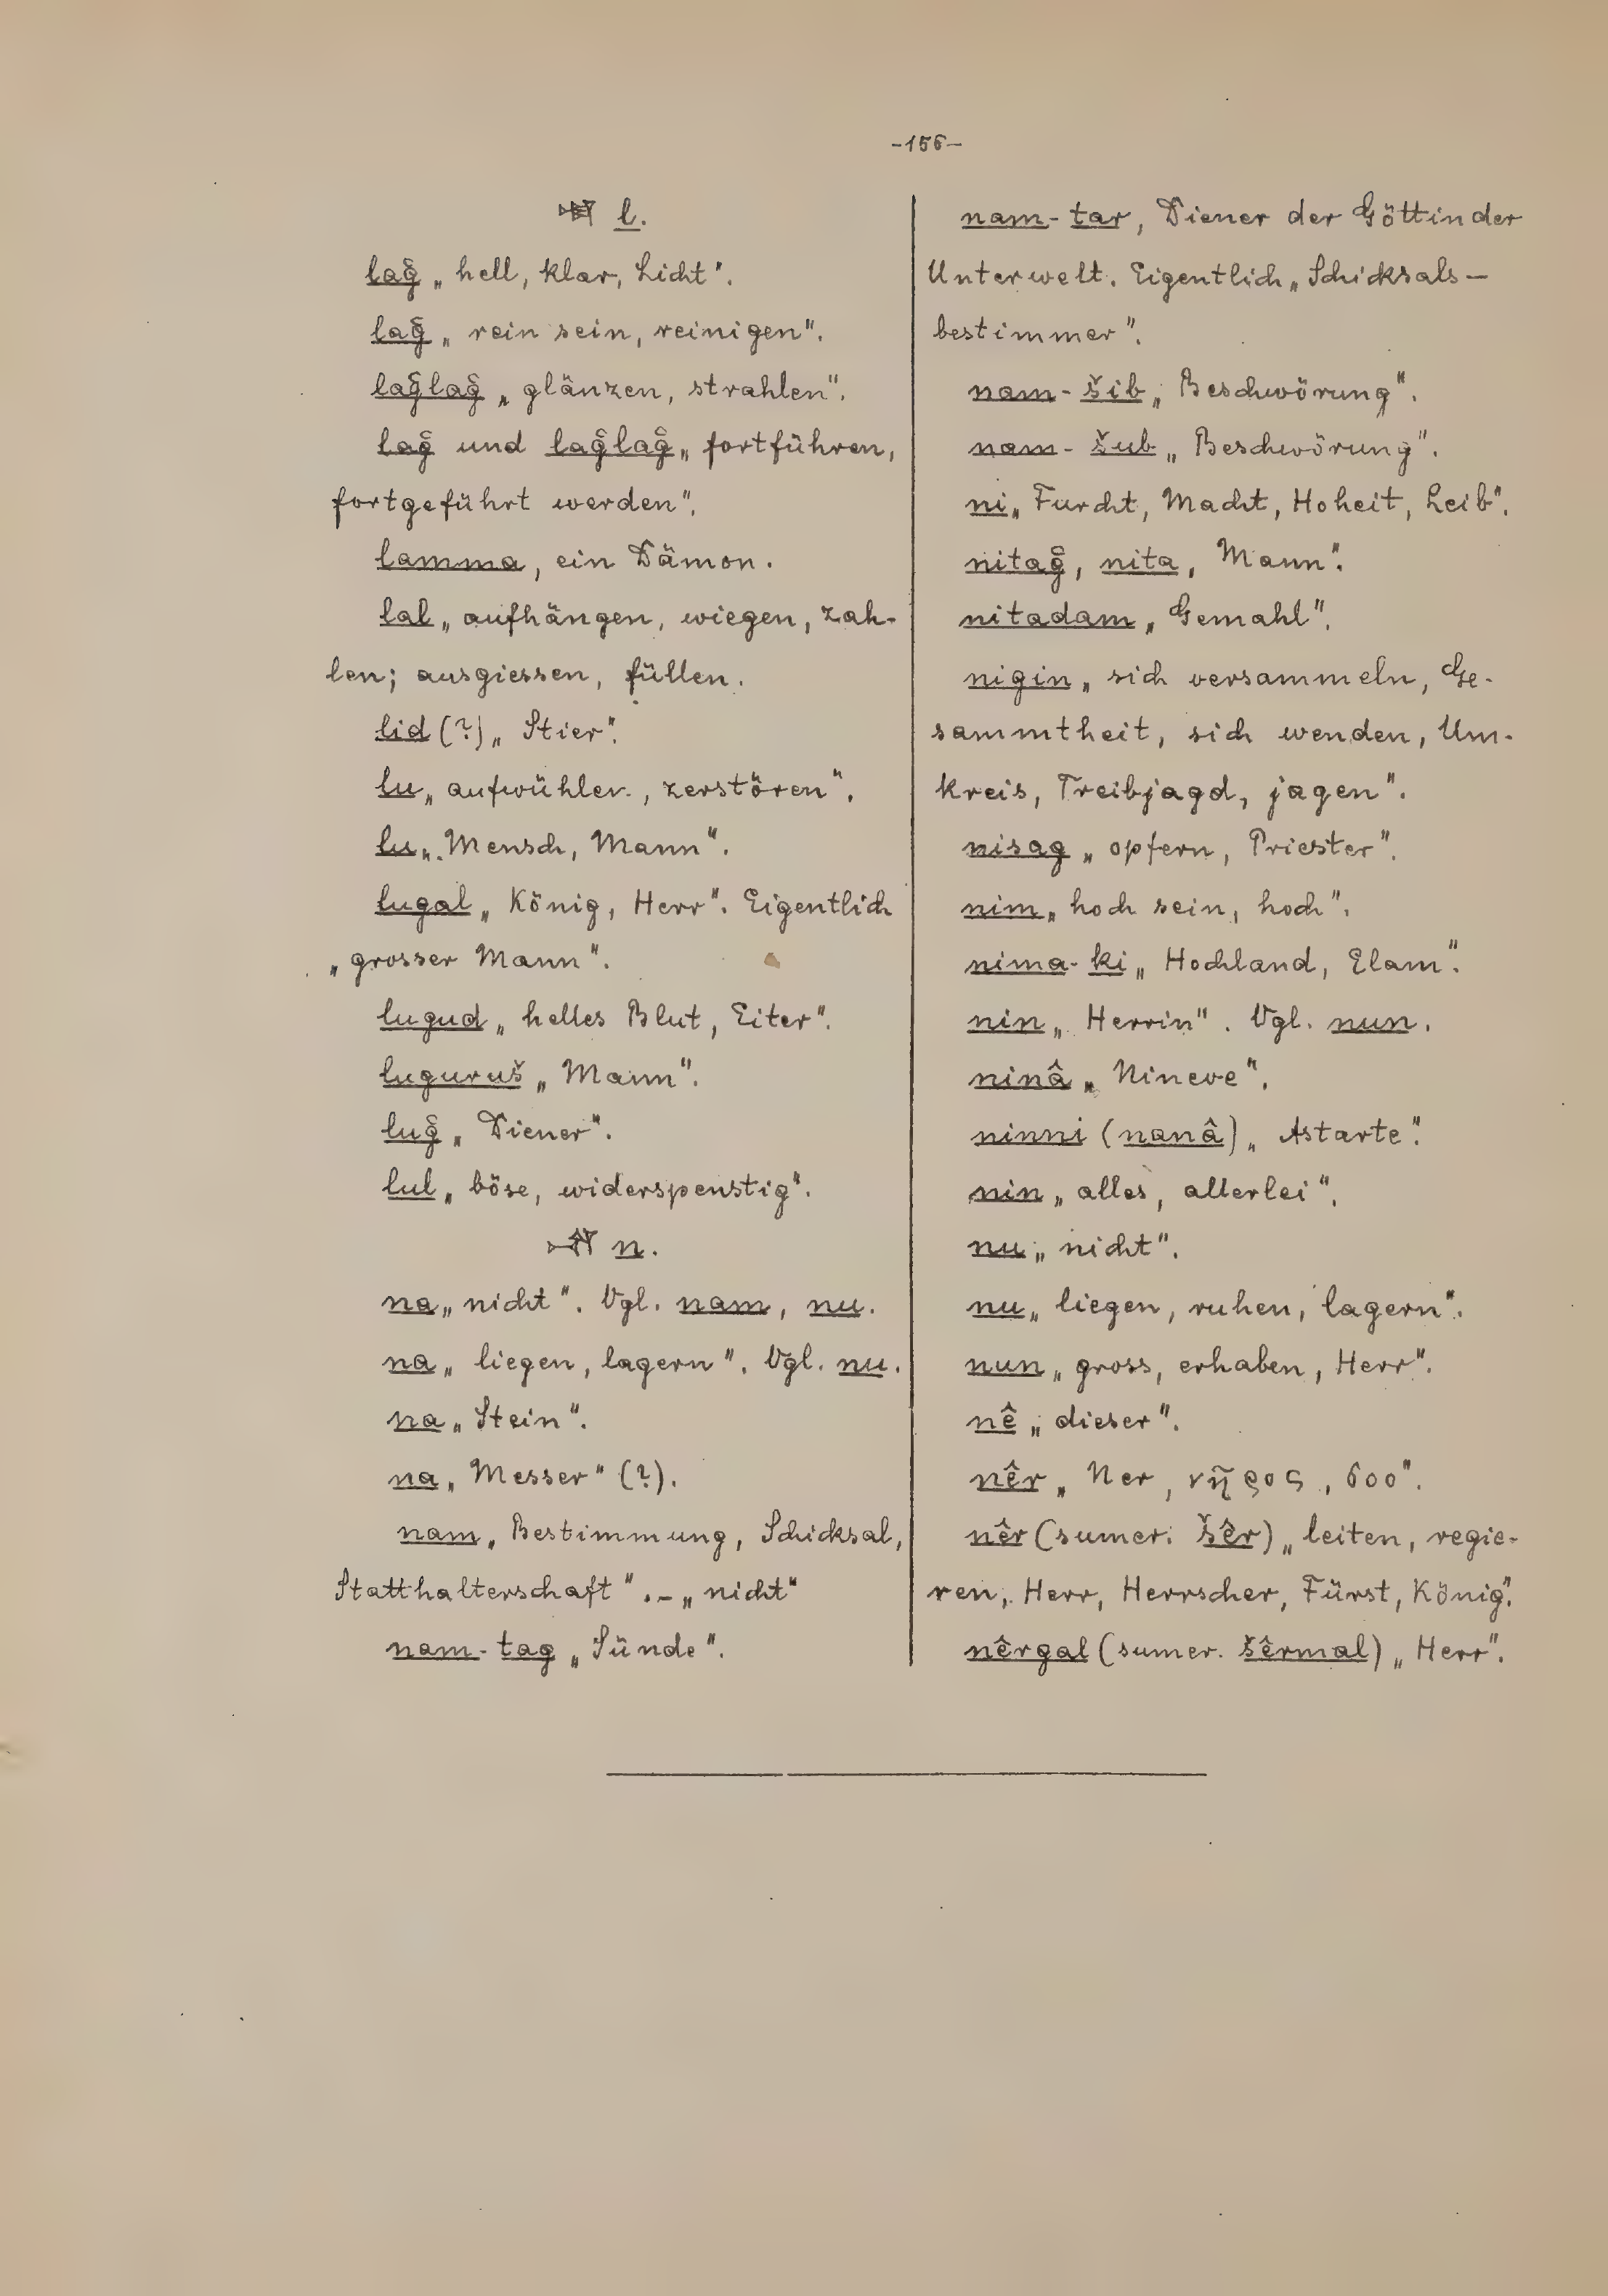 -156-
𒇻 l.
laĝ „hell, klar, Licht".
laĝ „rein sein, reinigen".
laĝlaĝ „glänzen, strahlen".
laĝ und laĝlaĝ „fortführen,
fortgeführt werden".
lamma, ein Dämon.
lal „aufhängen, wiegen, zah-
len; ausgiessen, füllen.
lid (?) „Stier".
lu „aufwühlen, zerstören".
lu „Mensch, Mann".
lugal „König, Herr". Eigentlich
„grosser Mann".
lugud „helles Blut, Eiter".
luguruš „Mann".
luĝ „Diener".
lul „böse, widerspenstig".
n.
na „nicht". Vgl. nam, nu.
na „liegen, lagern". Vgl. nu.
na „Stein".
na „Messer" (?).
nam „Bestimmung, Schicksal,
Statthalterschaft". – „nicht"
nam-tag „Sünde".
nam-tar, Diener der Göttin der
Unterwelt. Eigentlich „Schicksals-
bestimmer".
nam-šib „Beschwörung".
nam-šub „Beschwörung".
ni „Furcht, Macht, Hoheit, Leib".
nitaĝ, nita „Mann".
nitadam „Gemahl".
nigin „sich versammeln, Ge-
sammtheit, sich wenden, Um-
kreis, Treibjagd, jagen".
nisag „opfern, Priester".
nim „hoch sein, hoch".
nima-ki „Hochland, Elam".
nin „Herrin". Vgl. nun.
ninâ „Nineve".
ninni (nanâ) „Astarte".
nin „alles, allerlei".
nu „nicht".
nu „liegen, ruhen, lagern".
nun „gross, erhaben, Herr".
nê „dieser".
nêr „Ner, νῆρος, 600".
nêr (sumer. šêr) „leiten, regie-
ren, Herr, Herrscher, Fürst, König".
nêrgal (sumer. šêrmal) „Herr".